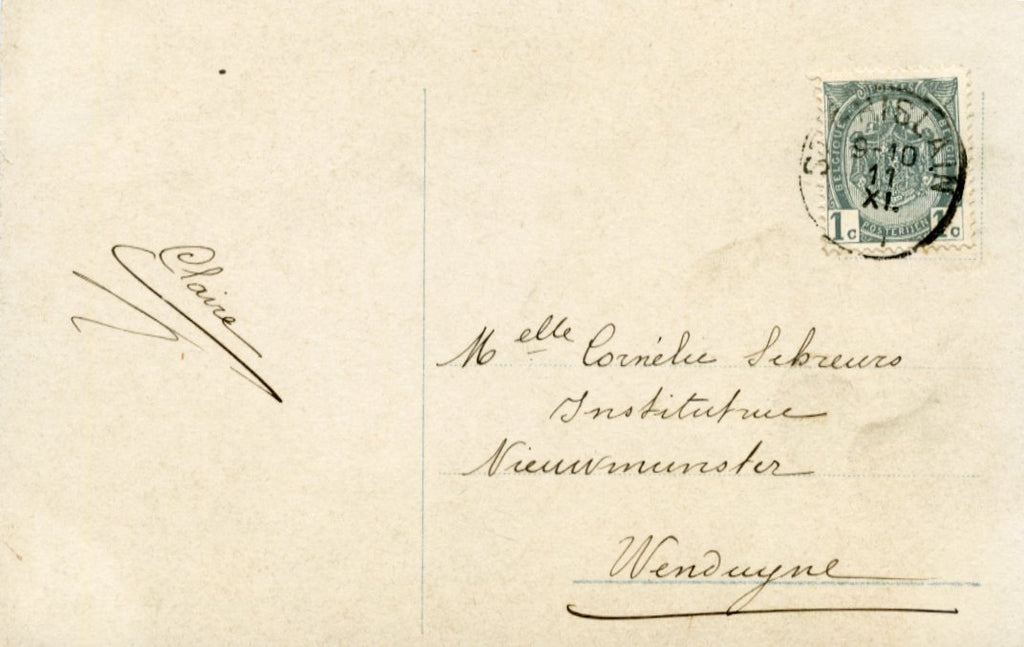 Claire
POSTES
BELGIQUE BELGIË
POSTERIJEN
1c 1c
ST GISLAIN
9-10
11
XI.
Melle Cornélie Schreurs
Institutrice
Nieuwmunster
Wenduyne